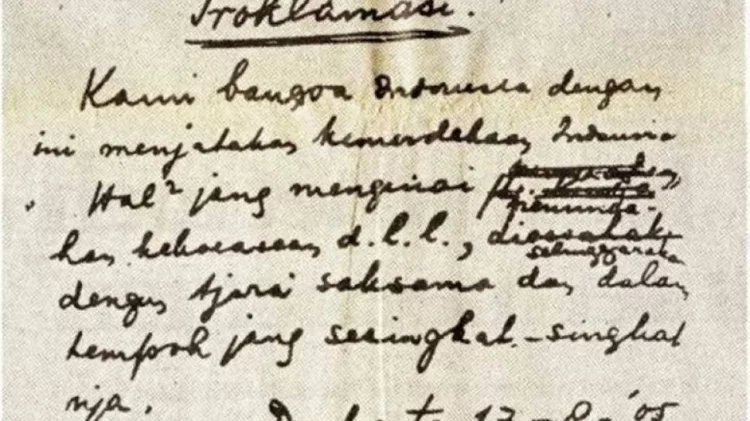 Proklamasi.
Kami bangsa Indonesia dengan
ini menjatakan kemerdekaan Indonesia
Hal² jang mengenai peminda-
han kekoeasaan d.l.l., dioesahakan
selenggarakan
dengan tjara saksama dan dalam
tempoh jang sesingkat-singkat
nja.
17-8-'05